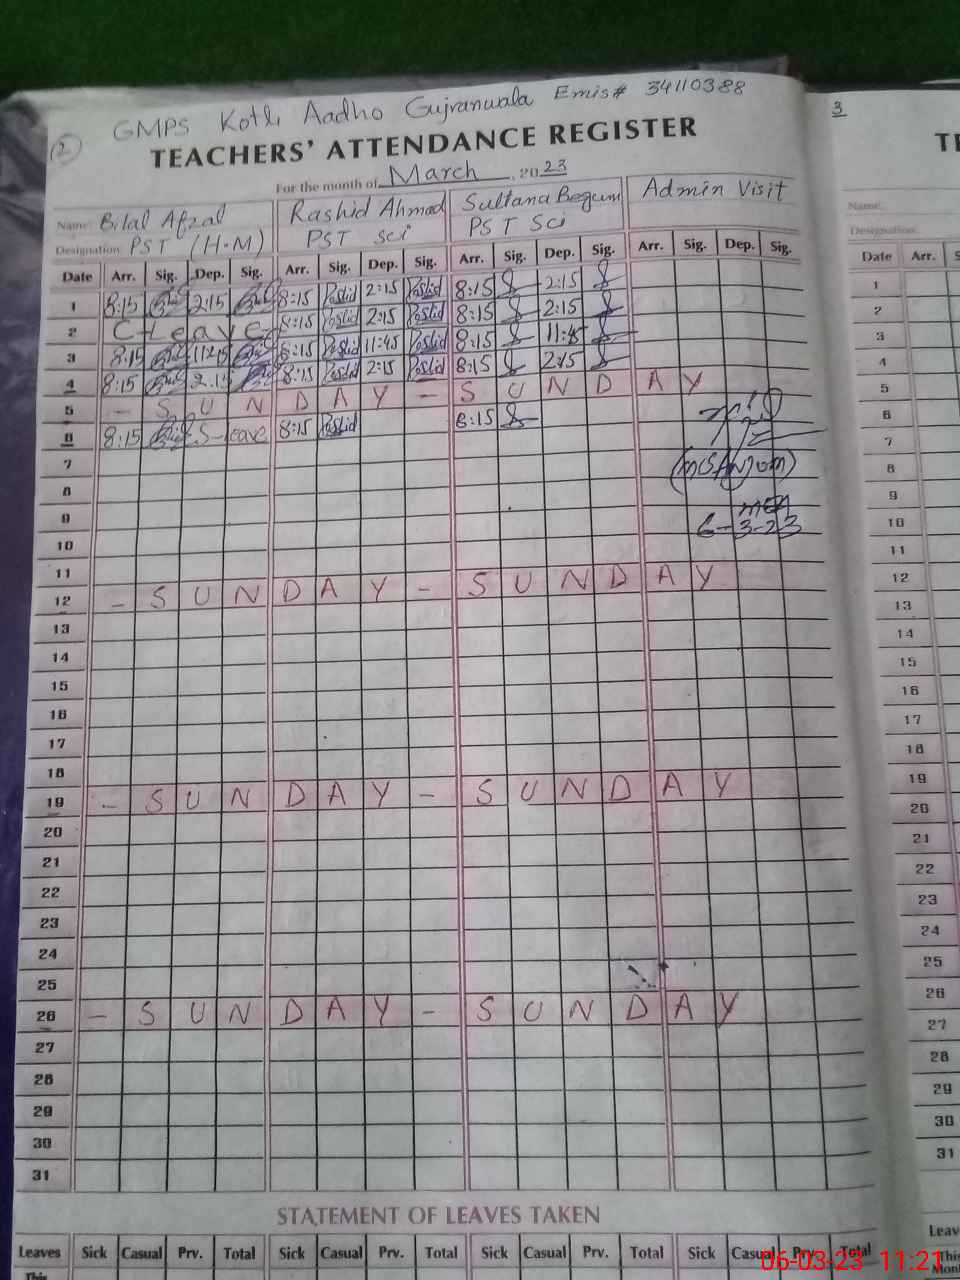 GMPS Kotli Aadho Gujranwala Emis# 34110388
2
TEACHERS' ATTENDANCE REGISTER
For the month of March 2023
Name: Bilal Afzal Rashid Ahmad Sultana Begum Admin Visit
Designation: PST (H.M) PST Sci PST Sci
Date Arr. Sig. Dep. Sig. Arr. Sig. Dep. Sig. Arr. Sig. Dep. Sig. Arr. Sig. Dep. Sig.
1 8:15 2:15 8:15 Rashid 2:15 Rashid 8:15 2:15
2 C-Leave 8:15 Rashid 2:15 Rashid 8:15 2:15
3 8:15 11:45 8:15 Rashid 11:45 Rashid 8:15 11:45
4 8:15 2:15 8:15 Rashid 2:15 Rashid 8:15 2:15
5 - S U N D A Y - S U N D A Y
6 8:15 S-leave 8:15 Rashid 8:15
7
8
(M.S.Anjum)
9
MEA
10
6-3-23
11
12 - S U N D A Y - S U N D A Y
13
14
15
16
17
18
19 - S U N D A Y - S U N D A Y
20
21
22
23
24
25
26 - S U N D A Y - S U N D A Y
27
28
29
30
31
STATEMENT OF LEAVES TAKEN
Leaves Sick Casual Prv. Total Sick Casual Prv. Total Sick Casual Prv. Total Sick Casual Prv. Total
This
3
Name:
Designation:
Date Arr.
1
2
3
4
5
6
7
8
9
10
11
12
13
14
15
16
17
18
19
20
21
22
23
24
25
26
27
28
29
30
31
This
06-03-23 11:21